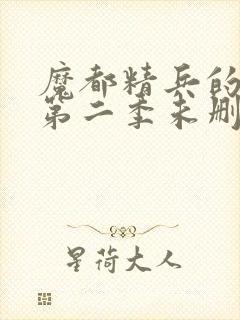 魔都精兵的
第二季未删
星荷大人